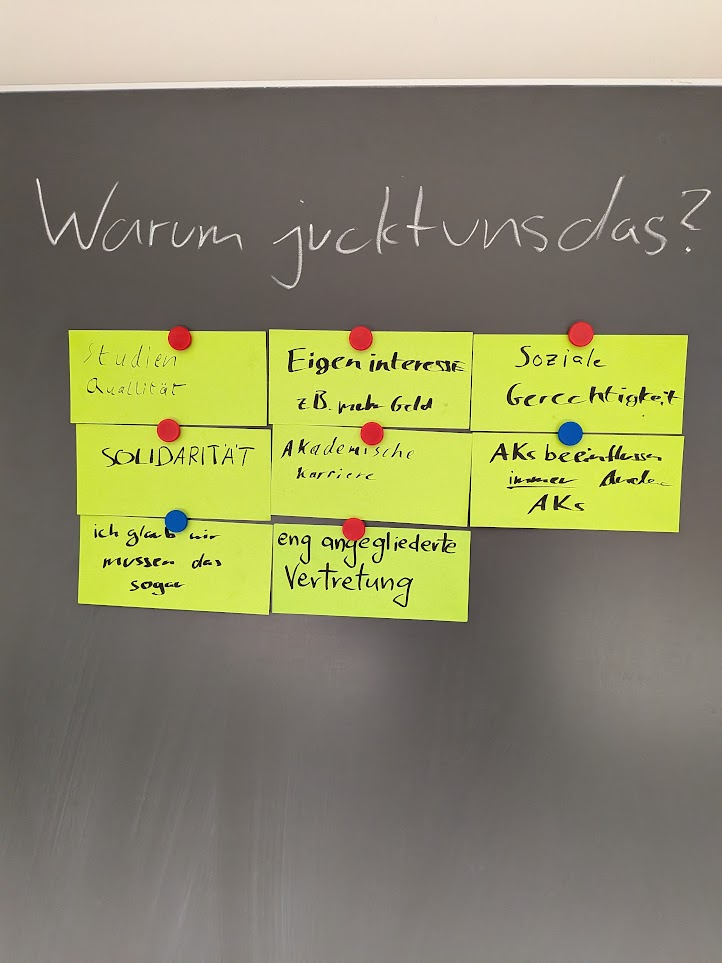 Warum juckt uns das?
Studien
Quallität
Eigeninteresse
z.B. mehr Geld
Soziale
Gerechtigkeit
SOLIDARITÄT
Akademische
Karriere
AKs beeinflussen
immer andere
AKs
ich glaub wir
müssen das
sogar
eng angegliederte
Vertretung